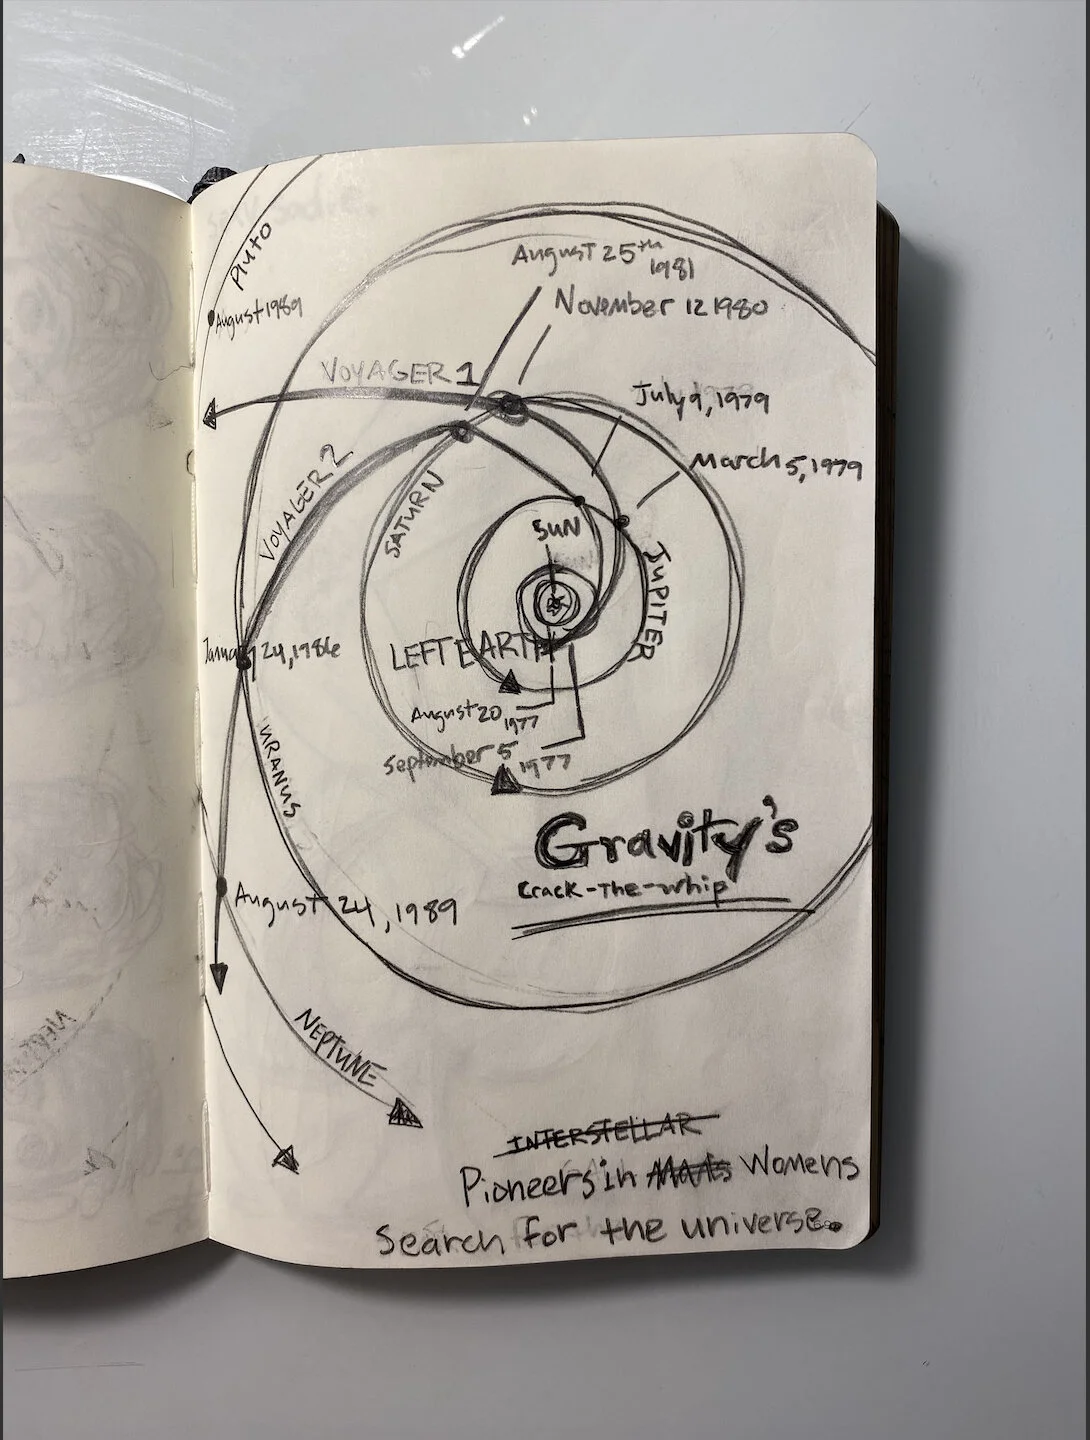 Pluto
August 25th
1981
November 12 1980
August 1989
VOYAGER 1
July 9, 1979
March 5, 1979
VOYAGER 2
SATURN
SUN
JUPITER
LEFT EARTH
January 24, 1986
August 20 1977
September 5 1977
URANUS
Gravity's
Crack-The-Whip
August 24, 1989
NEPTUNE
INTERSTELLAR
Pioneers in Womens
Search for the universe.